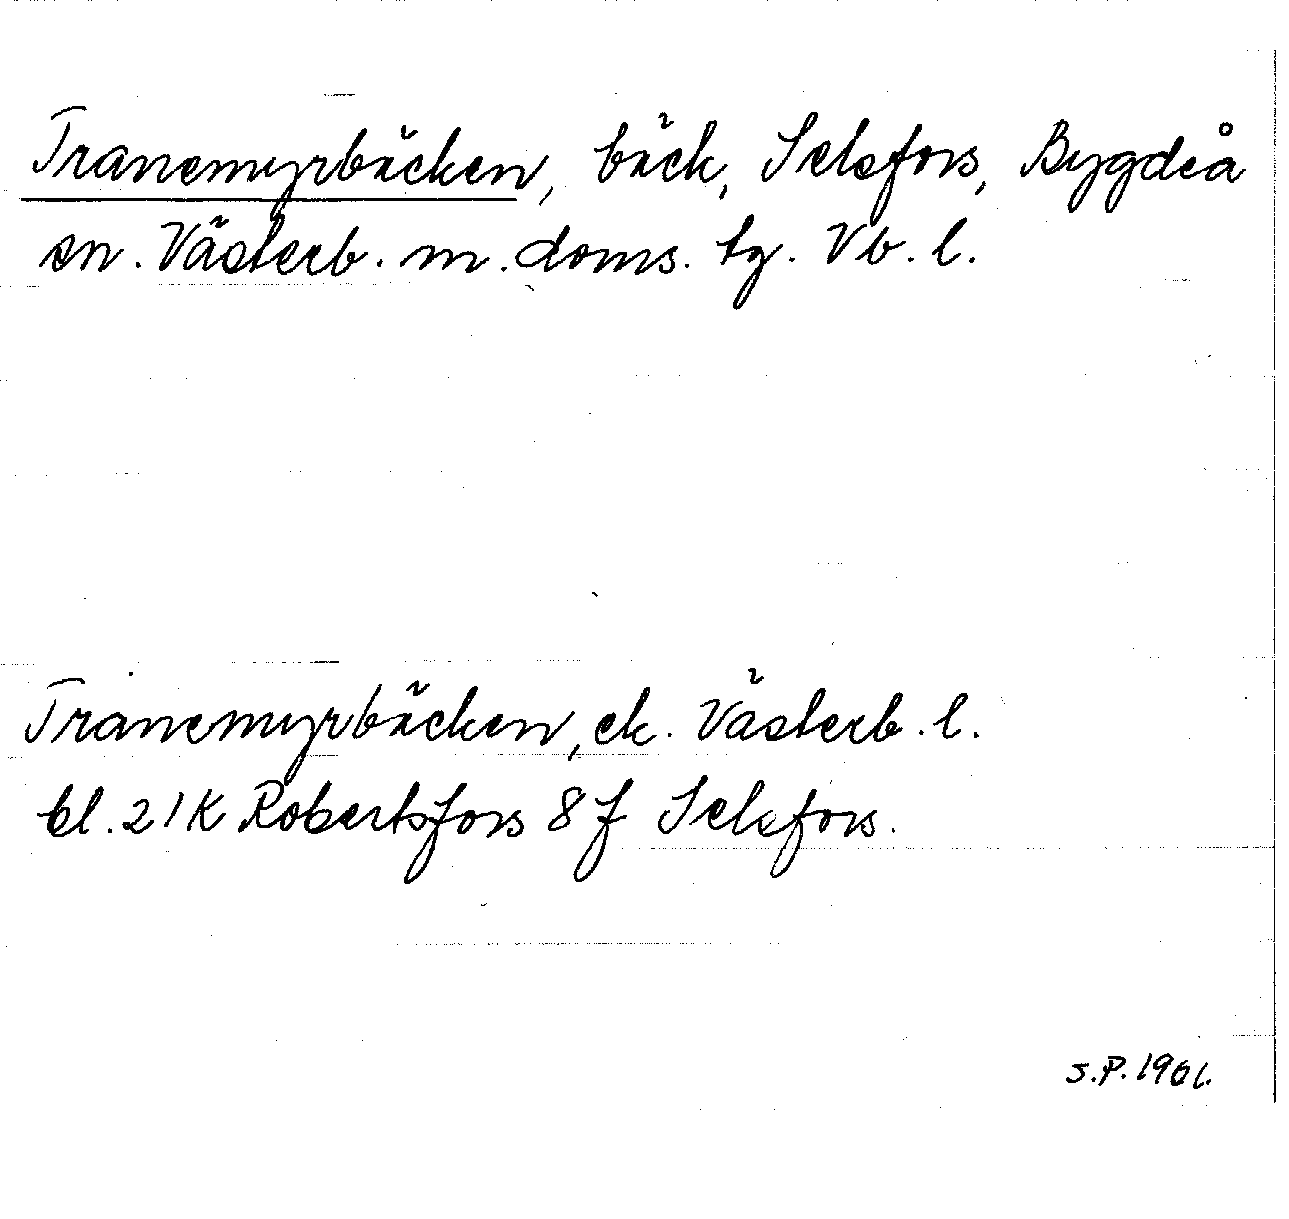 Tranemyrbäcken, bäck, Selsfors, Bygdeå
sn. Västerb. m. doms. tg. Vb. l.
Tranemyrbäcken, ek. Västerb. l.
bl. 21K Robertsfors 8f Selsfors.
S.P. 1961.